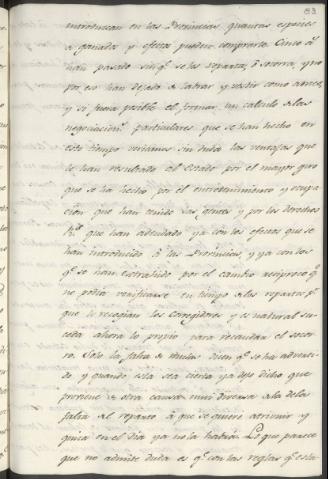 83
introduzcan en las Provincias, quantas especies
de ganados y efectos puedan comprarlo. Cinco a.s
han pasado sin q.e se les reparta, ó socorra, y no
por eso han dejado de labrar y vestir como antes,
y si fuera posible el formar un calculo de las
negociacion.s particulares que se han hecho en
este tiempo veriamos sin duda las ventajas que
le han resultado al Estado por el mayor giro
que se ha hecho, por el entretenimiento y ocupa
cion que han tenido las gentes y por los derechos
R.s que han adeudado ya con los efectos que se
han introducido á las Provincias, y ya con los
q.e se han extrahido por el cambio reciproco q.e
no podia verificarse en tiempo de los repartos p.r
que lo recogian los Corregidores y es natural su
ceda ahora lo propio para recaudar el socor
ro. Solo la falta de mulas dicen q.e se ha adverti
do, y quando esta sea cierta ya dejo dicho que
proviene de otra causa muy diversa de la de la
falta de reparto á que se quiere atribuir y
quiza en el dia ya no la habrá. Lo que parece
que no admite duda es q.e con las reglas q.e esta